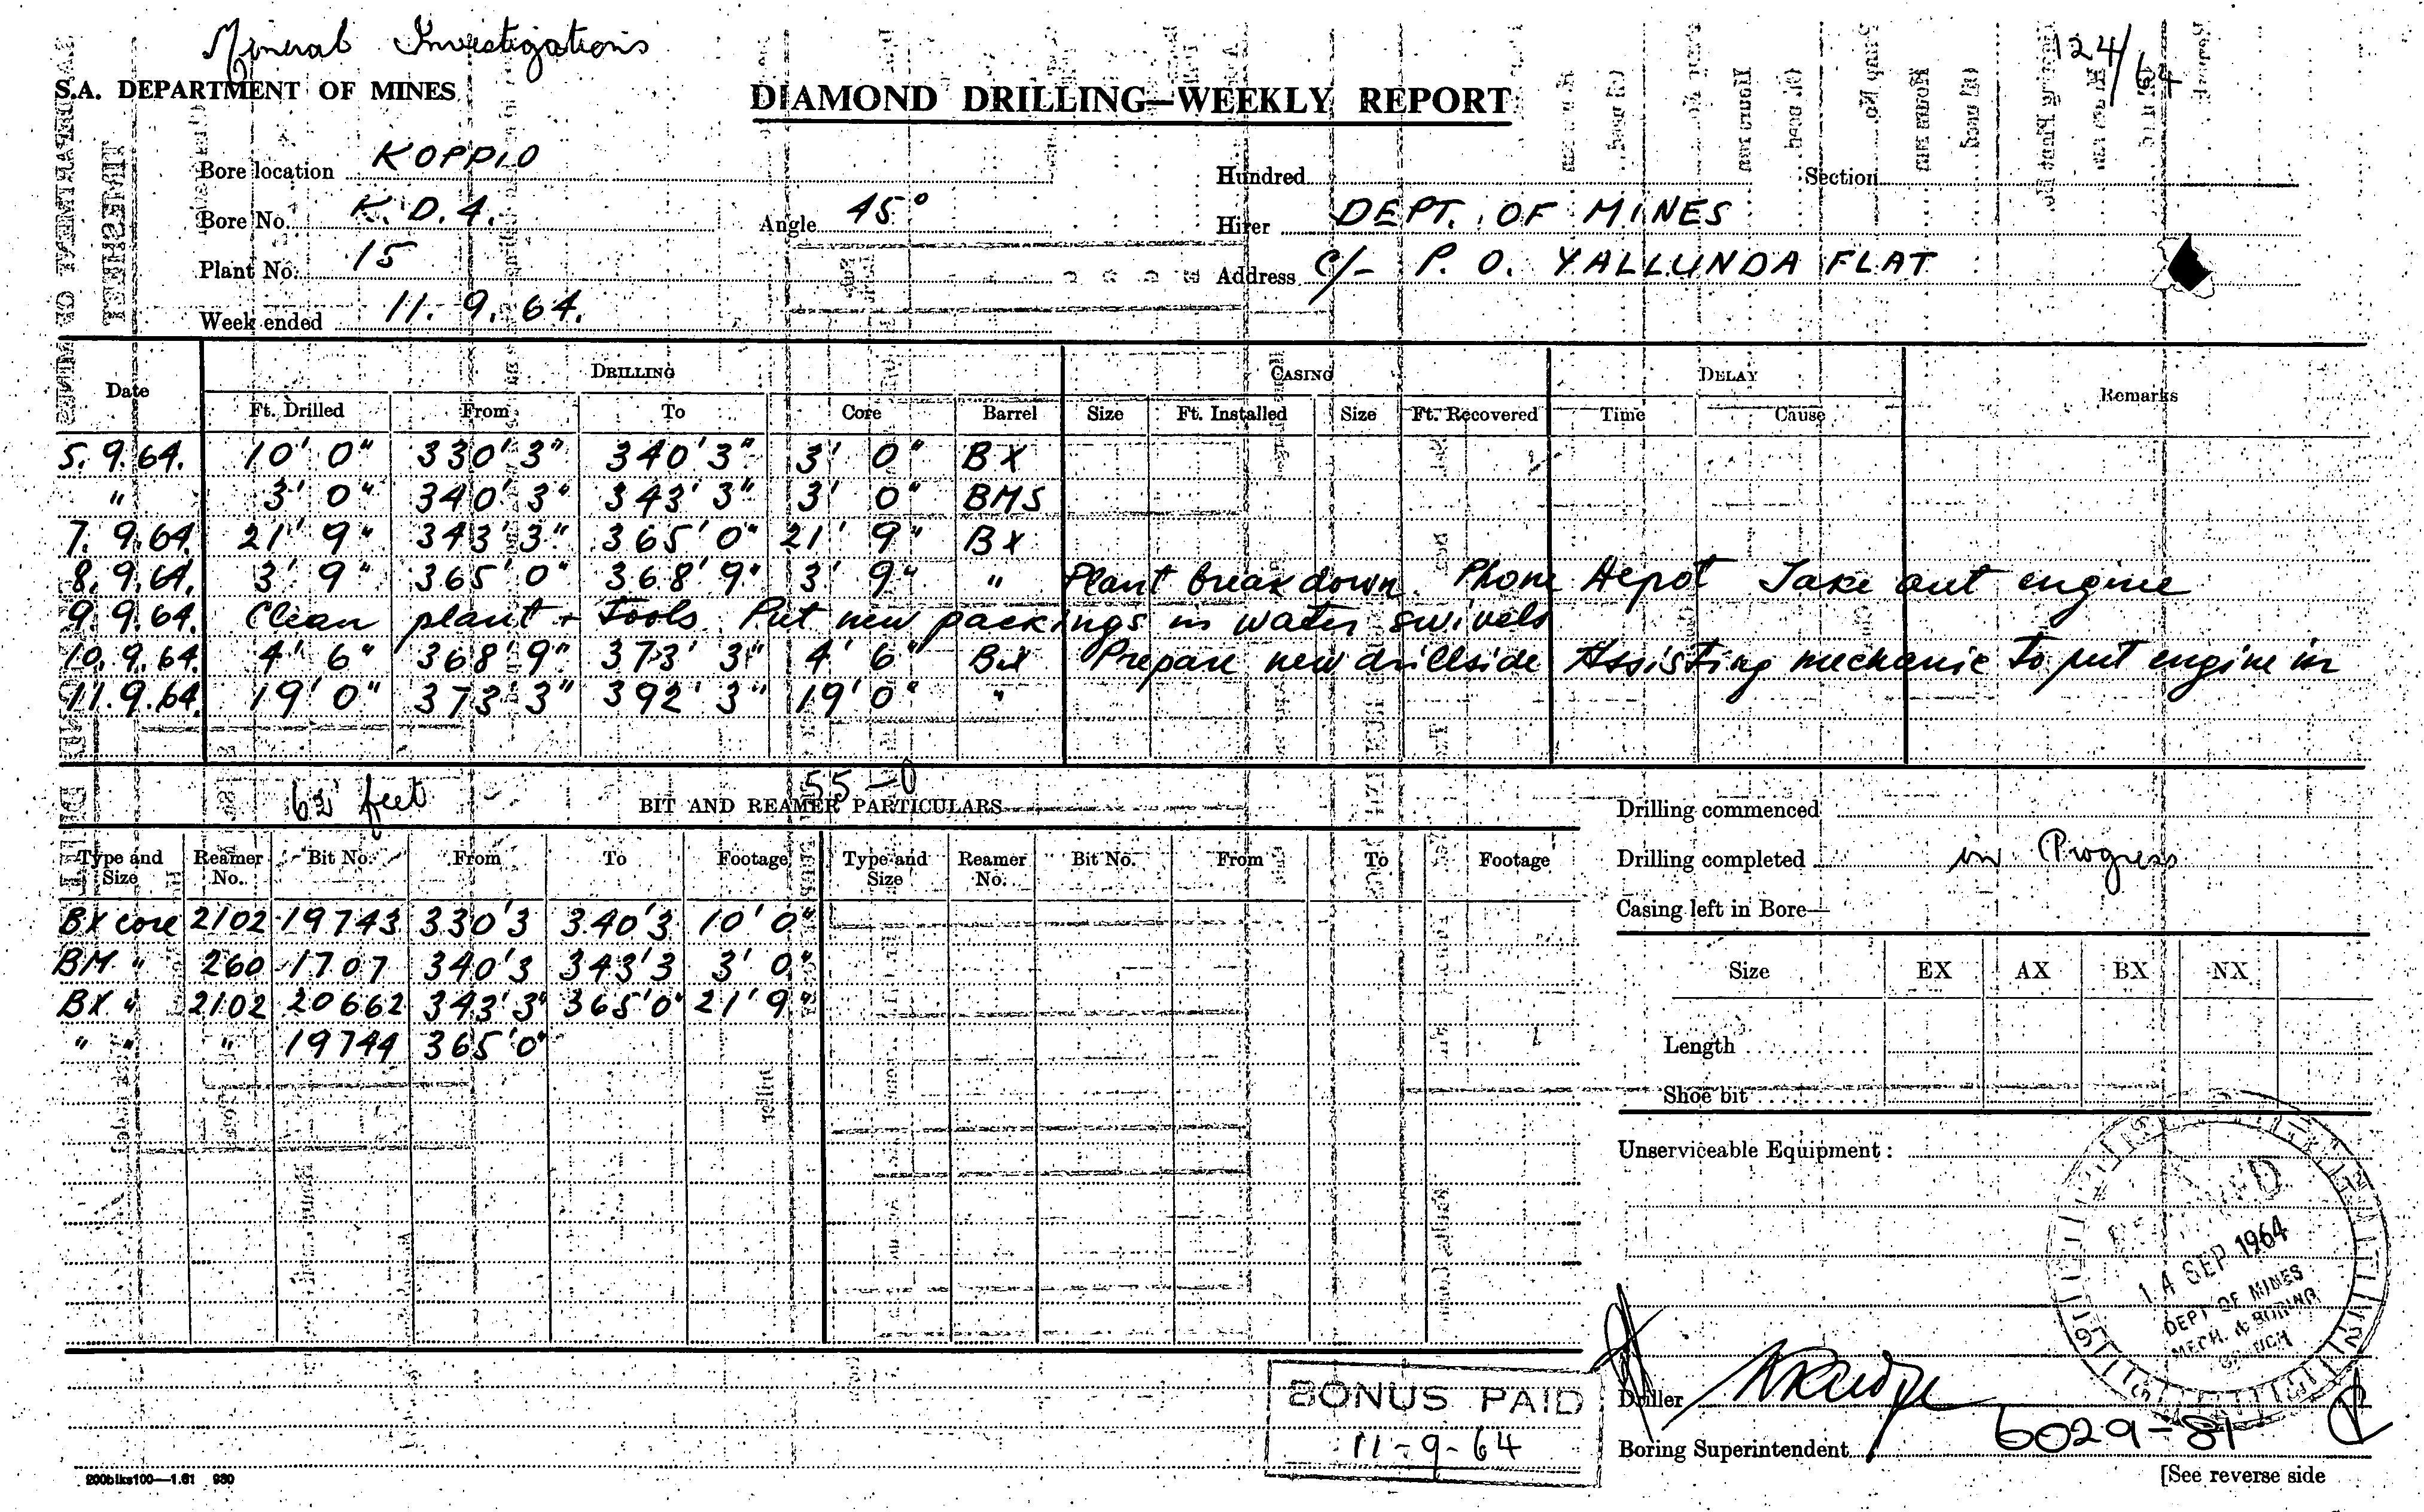 Mineral Investigations
124/64
S.A. DEPARTMENT OF MINES
DIAMOND DRILLING—WEEKLY REPORT
Bore location KOPPIO
Hundred Section
Bore No. K.D.4. Angle 45°
Hirer DEPT. OF MINES
Plant No. 15
Address C/- P.O. YALLUNDA FLAT
Week ended 11.9.64.
Date DRILLING CASING DELAY Remarks
Ft. Drilled From To Core Barrel Size Ft. Installed Size Ft. Recovered Time Cause
5.9.64. 10' 0" 330' 3" 340' 3" 3' 0" BX
" 3' 0" 340' 3" 343' 3" 3' 0" BMS
7.9.64. 21' 9" 343' 3" 365' 0" 21' 9" BX
8.9.64. 3' 9" 365' 0" 368' 9" 3' 9" " Plant break down Phone Depot Take out engine
9.9.64. Clean plant + Tools Put new packings in water swivels
10.9.64. 4' 6" 368' 9" 373' 3" 4' 6" BX Prepare new drillside Assisting mechanic to put engine in
11.9.64. 19' 0" 373' 3" 392' 3" 19' 0" "
62 feet 55-0
BIT AND REAMER PARTICULARS
Drilling commenced
Type and Size Reamer No. Bit No. From To Footage Type and Size Reamer No. Bit No. From To Footage
Drilling completed in Progress
Casing left in Bore—
BX core 2102 19743 330'3 340'3 10' 0"
BM " 260 1707 340'3 343'3 3' 0"
BX " 2102 20662 343'3" 365'0" 21' 9"
" " " 19744 365'0"
Size EX AX BX NX
Length
Shoe bit
Unserviceable Equipment:
14 SEP 1964
DEPT OF MINES
MECH. & BORING
BONUS PAID
11-9-64
Driller
Boring Superintendent 6029-81
200blks100—1.61 980
[See reverse side